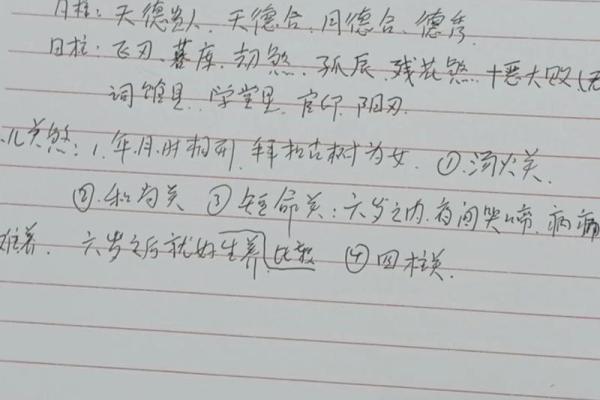 月柱：天德贵人、天德合、月德合、德秀
日柱：飞刃、墓库、劫煞、孤辰、残花煞 十恶大败（
词馆里、学堂里、官印、阳刃.
儿关煞：1. 年月时相刑，拜松古树为女、①汤火关、
② 和尚关 ③ 短命关：六岁之内，夜间哭啼、病痛
难养、六岁之后就好生养比较 ④四柱关.